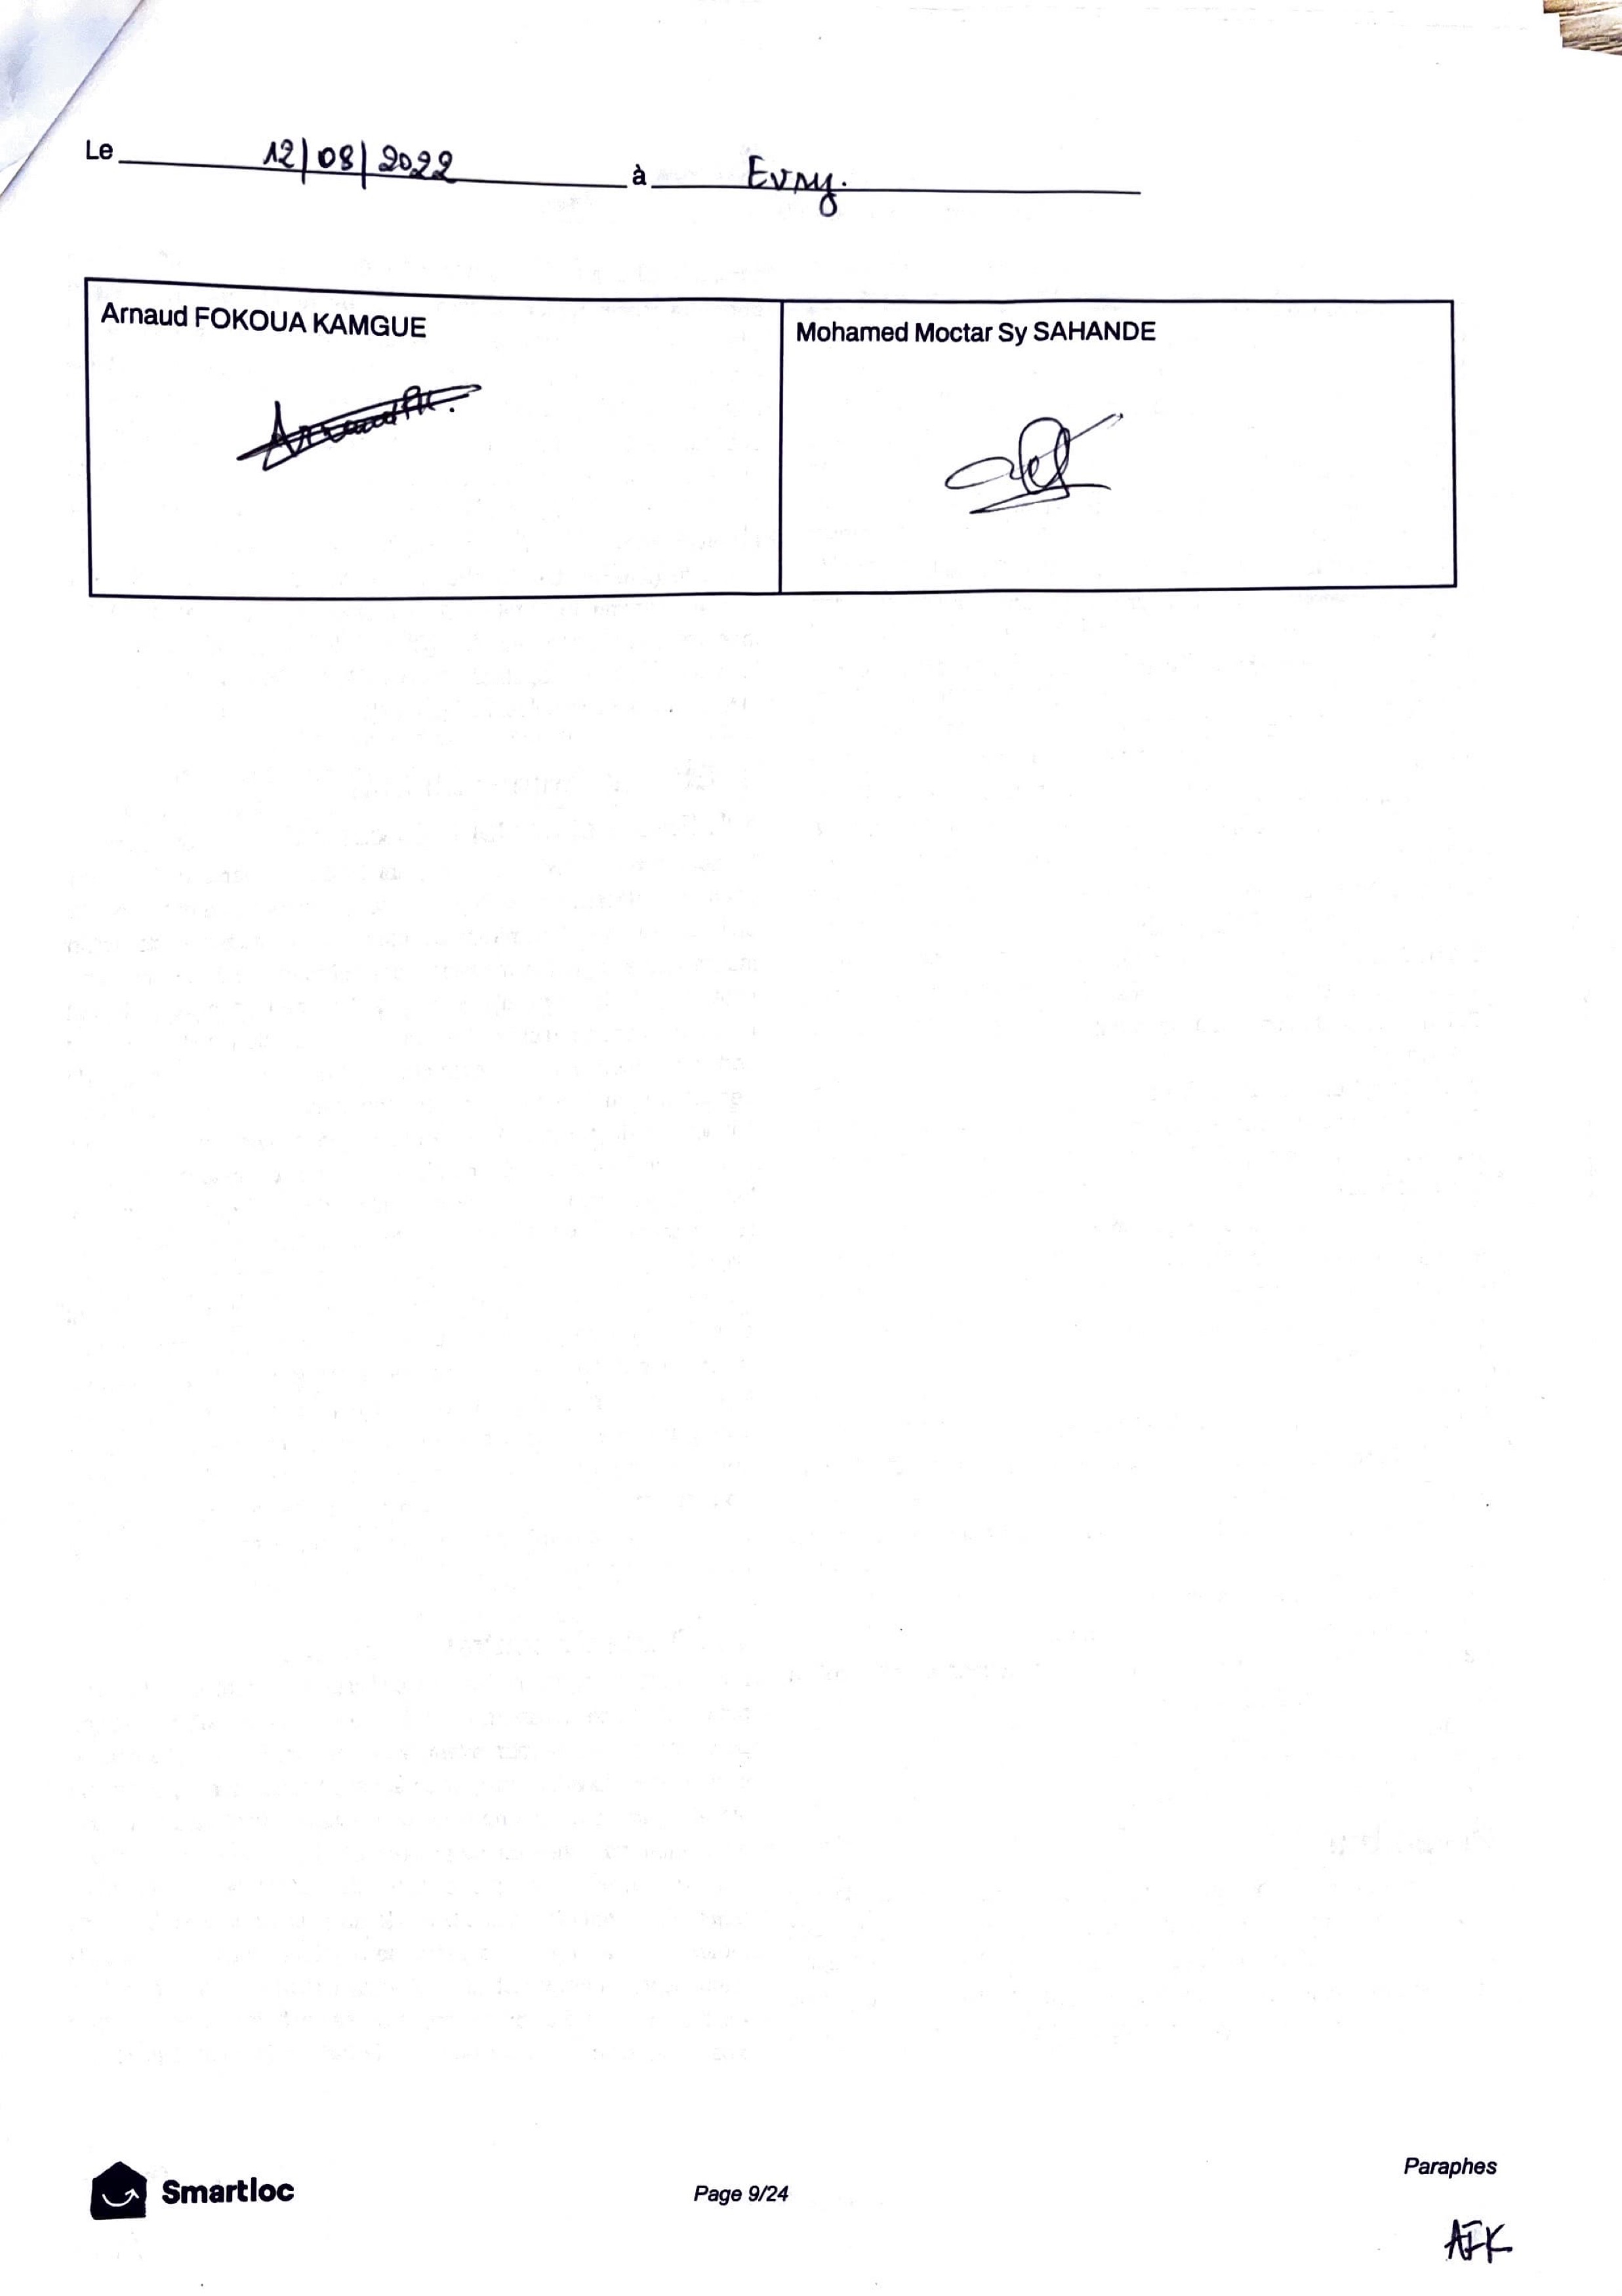 Le 12/08/2022 à Evry.
Arnaud FOKOUA KAMGUE
Mohamed Moctar Sy SAHANDE
Smartloc
Page 9/24
Paraphes
AFK